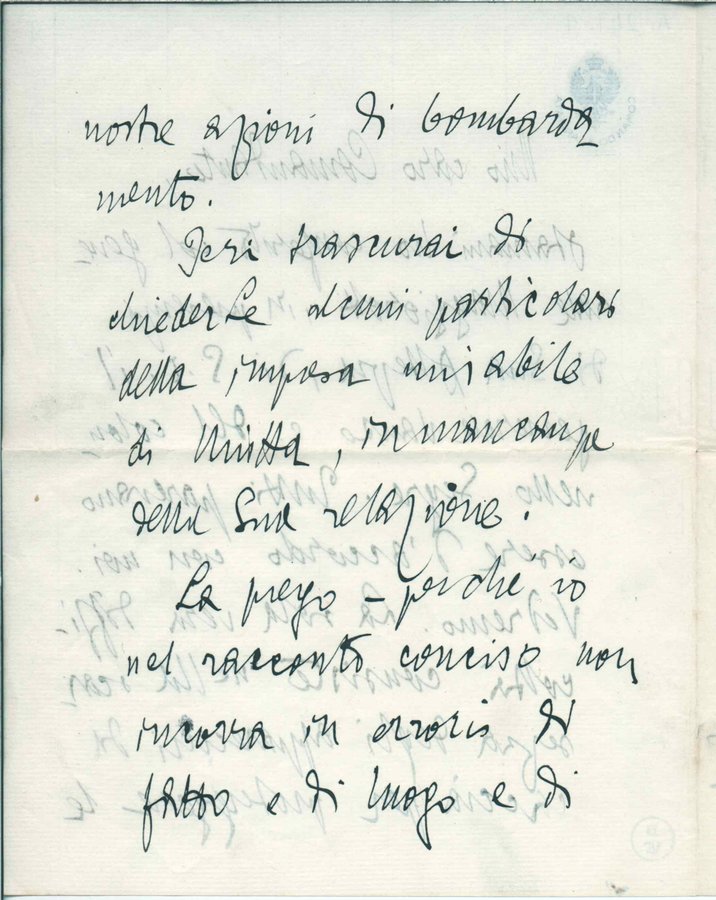 nostre azioni di bombarda
mento.
Ieri trascurai di
chiederLe alcuni particolari
della impresa mirabile
di , in mancanza
della Sua relazione.
La prego – perché io
nel racconto conciso non
incorra in errori di
fatto e di luogo e di